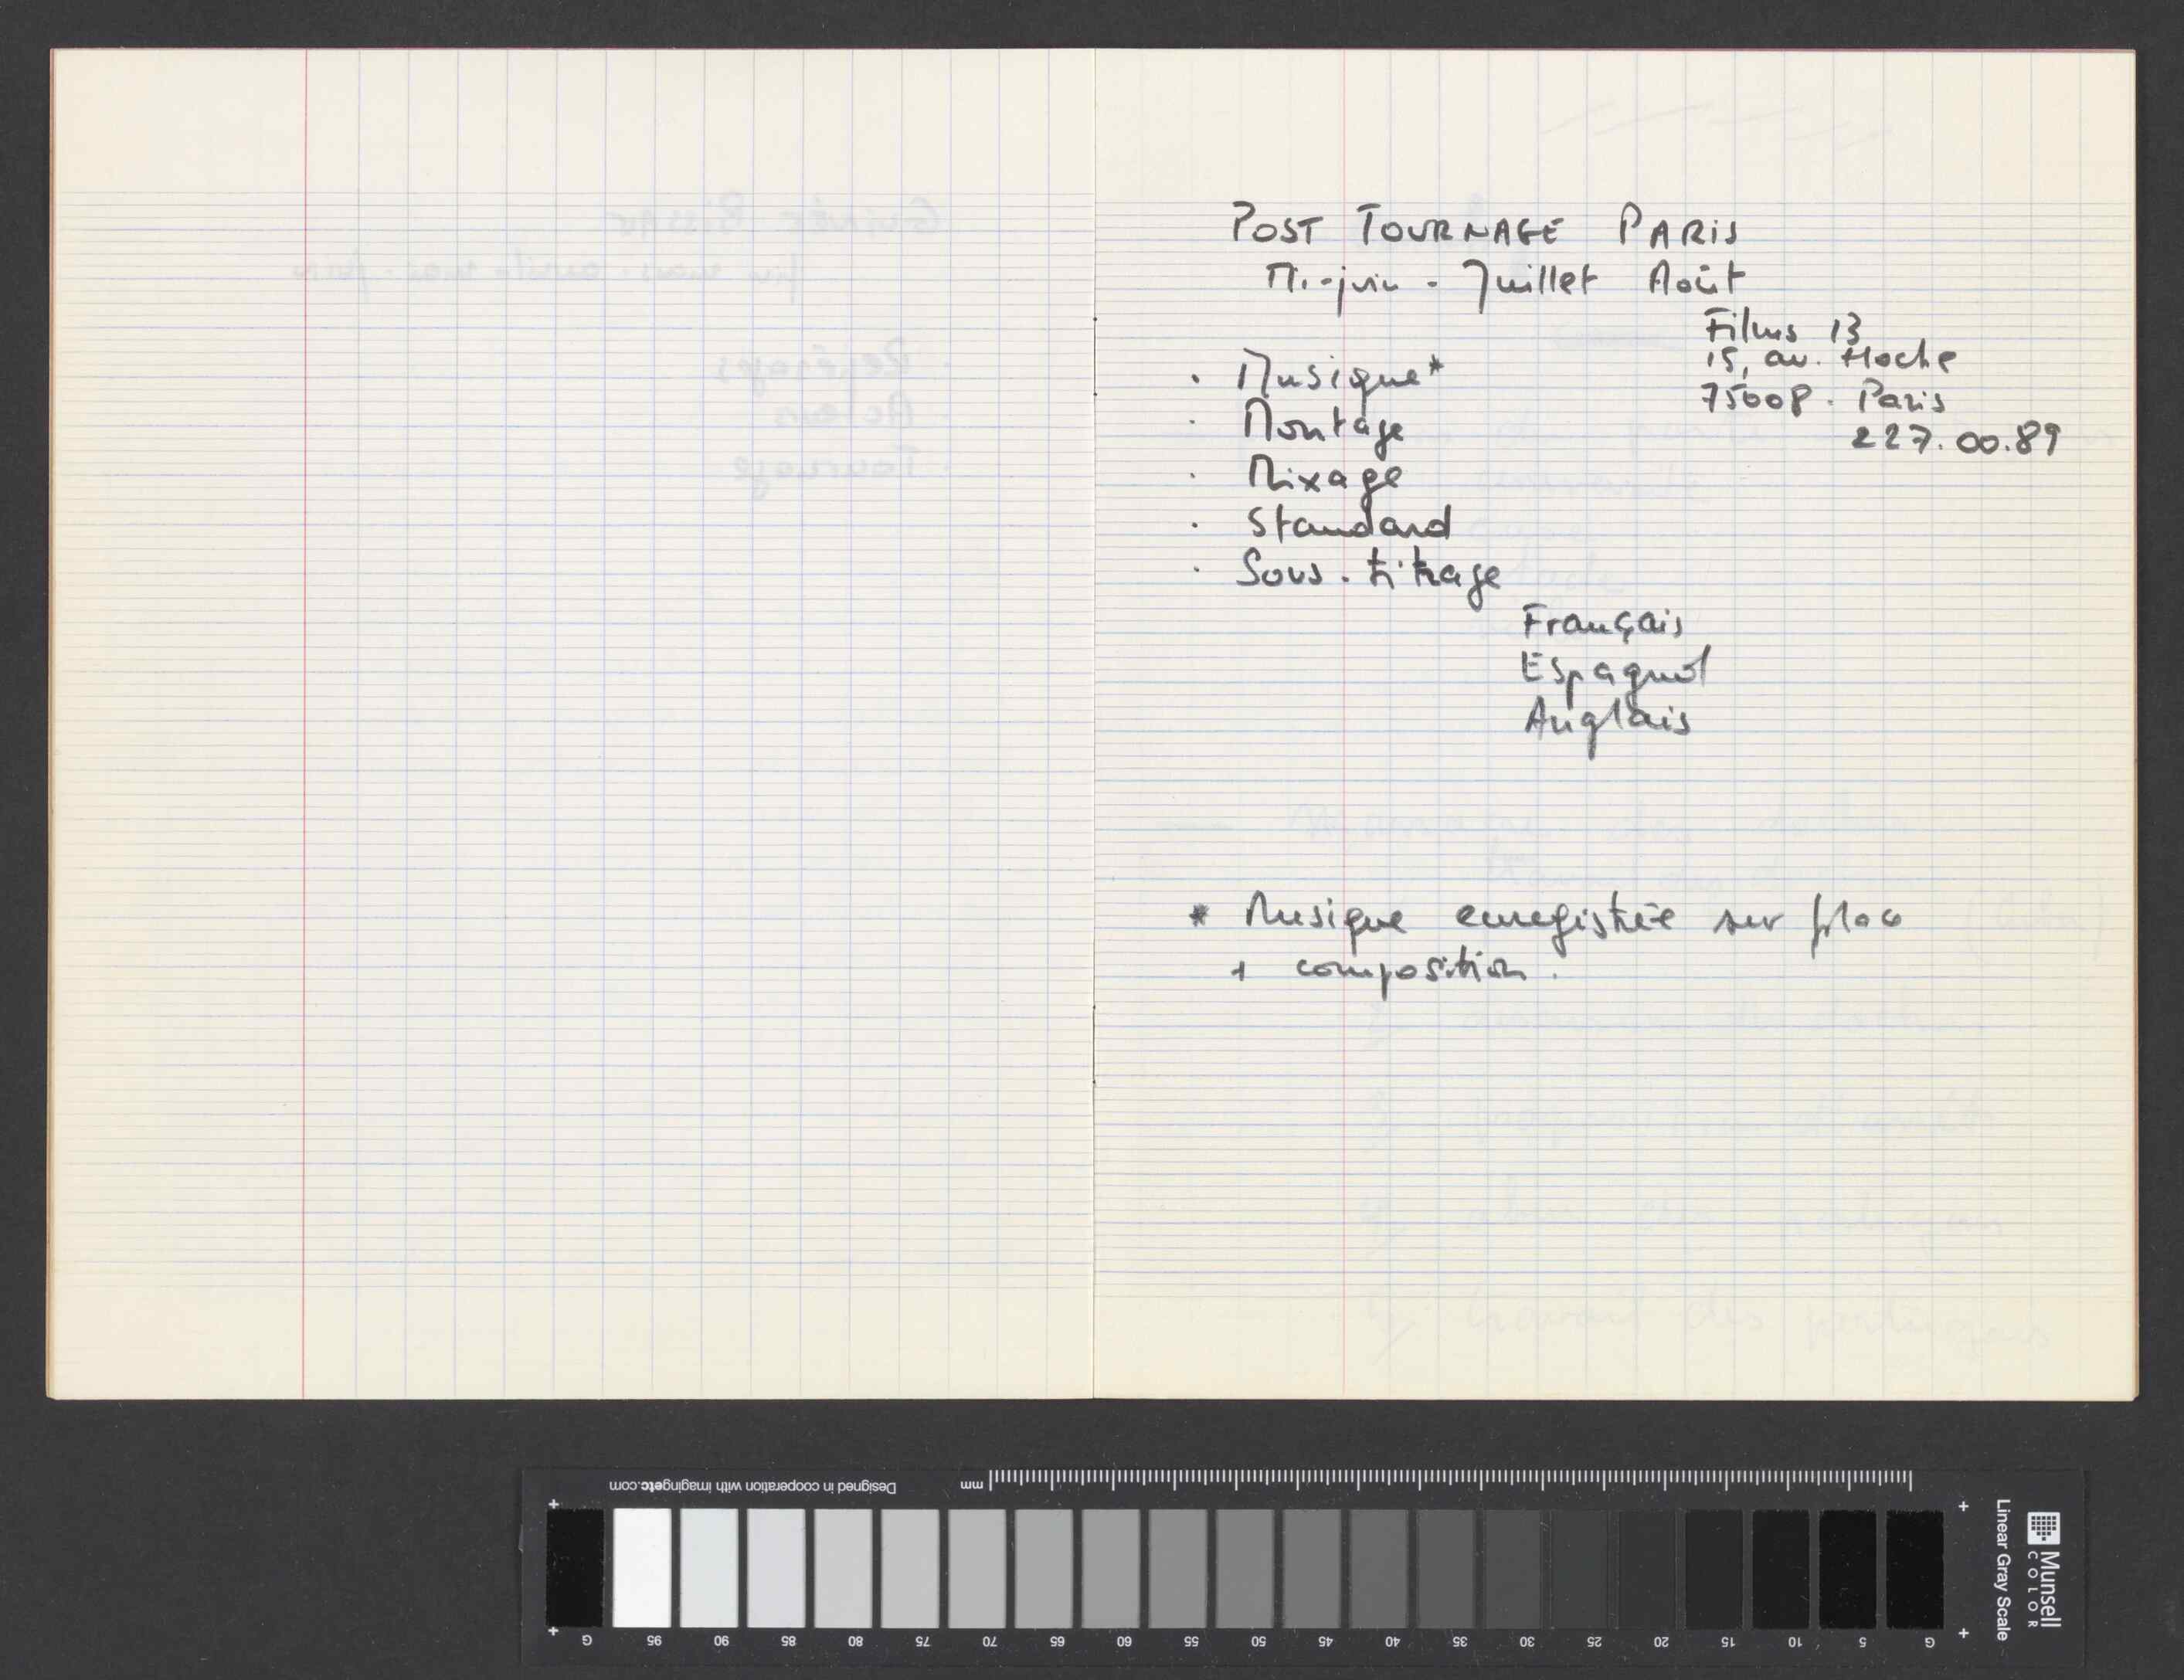 POST TOURNAGE PARIS
Mi-juin - Juillet Août
Films 13
15, av. Hoche
75008. Paris
227.00.89
. Musique*
. Montage
. Mixage
. Standard
. Sous-titrage
Français
Espagnol
Anglais
* Musique enregistrée sur place
+ composition.
Guinée Bissau
Repérages
Tournage
Designed in cooperation with imagingetc.com
mm
G 95 90 85 80 75 70 65 60 55 50 45 40 35 30 25 20 15 10 5 G
Linear Gray Scale
Munsell
COLOR